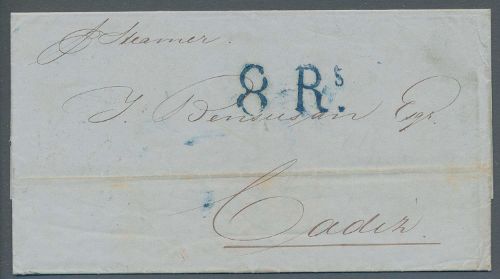 p Steamer.
8 Rs.
J. Bensusan Esqr.
Cadiz